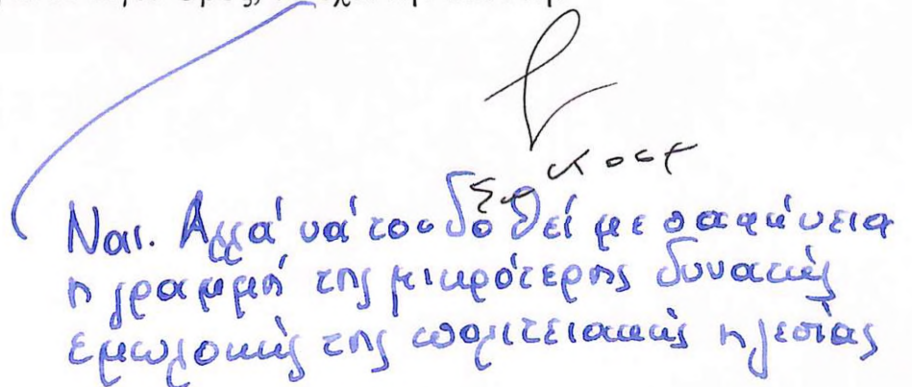 Ναι. Αλλά νά του δοθεί με σαφήνεια
η γραμμή της μικρότερης δυνατής
εμπλοκής της πολιτειακής ηγεσίας